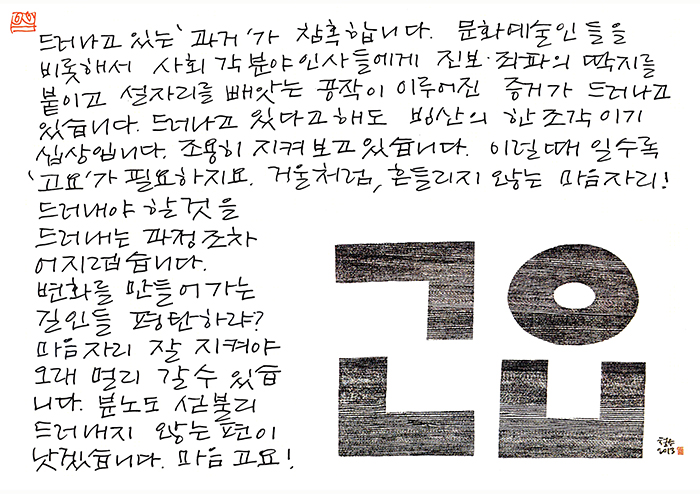 드러나고 있는 '과거'가 참혹합니다. 문화예술인들을
비롯해서 사회 각분야 인사들에게 진보·좌파의 딱지를
붙이고 설자리를 빼앗는 공작이 이루어진 증거가 드러나고
있습니다. 드러나고 있다고 해도 빙산의 한조각이기
십상입니다. 조용히 지켜보고 있습니다. 이럴때 일수록
'고요'가 필요하지요. 거울처럼, 흔들리지 않는 마음자리!
드러내야 할것을
드러내는 과정조차
어지럽습니다.
변화를 만들어가는
길인들 평탄하랴?
마음자리 잘 지켜야
오래 멀리 갈수 있습
니다. 분노도 섣불리
드러내지 않는 편이
낫겠습니다. 마음 고요!
고요
철수
2013